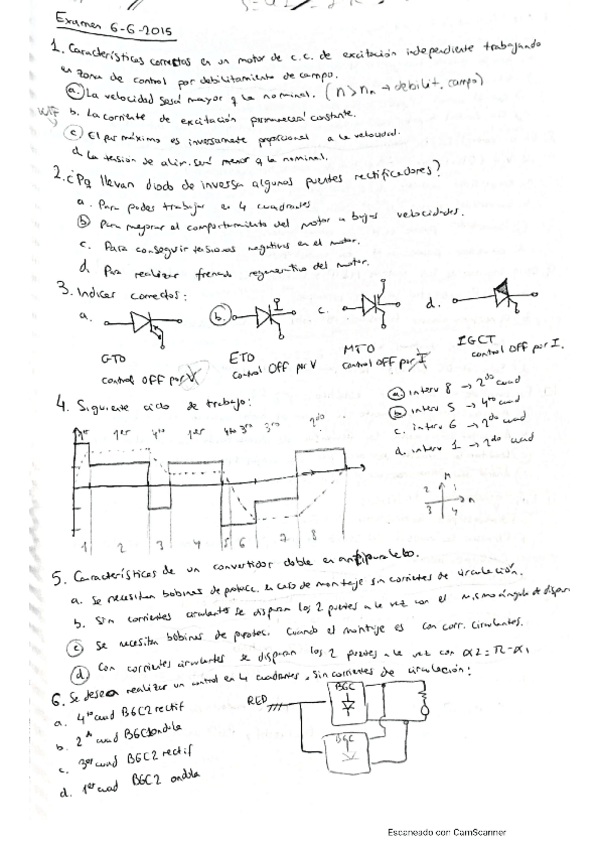 Examen 6-6-2015
1. Características correctas en un motor de c.c. de excitación independiente trabajando
en zona de control por debilitamiento de campo.
a. La velocidad será mayor q la nominal. (n>nn → debilit. campo)
b. La corriente de excitación permanecerá constante.
c. El par máximo es inversamente proporcional a la velocidad.
d. La tensión de alim. será menor q la nominal.
2. ¿Pq llevan diodo de inversa algunos puentes rectificadores?
a. Para poder trabajar en 4 cuadrantes
b. Para mejorar el comportamiento del motor a bajas velocidades.
c. Para conseguir tensiones negativas en el motor.
d. Para realizar frenado regenerativo del motor.
3. Indices correctos:
a. b. c. d.
GTO ETO MTO IGCT
control OFF por V control OFF por V control OFF por I control OFF por I.
4. Siguiente ciclo de trabajo:
a. interv 8 → 2do cuad
b. interv 5 → 4to cuad
c. interv 6 → 2do cuad
d. interv 1 → 2do cuad
1er 1er 4to 1er 4to 3ro 3ro 2do
1 2 3 4 5 6 7 8
M
2 1 n
3 4
5. Características de un convertidor doble en antiparalelo.
a. Se necesitan bobinas de protecc. en caso de montaje sin corrientes de circulación.
b. Sin corrientes circulantes se disparan los 2 puentes a la vez con el mismo ángulo de dispar
c. Se necesitan bobinas de protec. Cuando el montaje es con corr. Circulantes.
d. Con corrientes circulantes se disparan los 2 puentes a la vez con α2=π-α1
6. Se desea realizar un control en 4 cuadrantes, sin corrientes de circulación:
a. 4to cuad BGC2 rectif
b. 2do cuad BGC ondula
c. 3er cuad BGC2 rectif
d. 1er cuad BGC2 ondula
RED
BGC
BGC
Escaneado con CamScanner